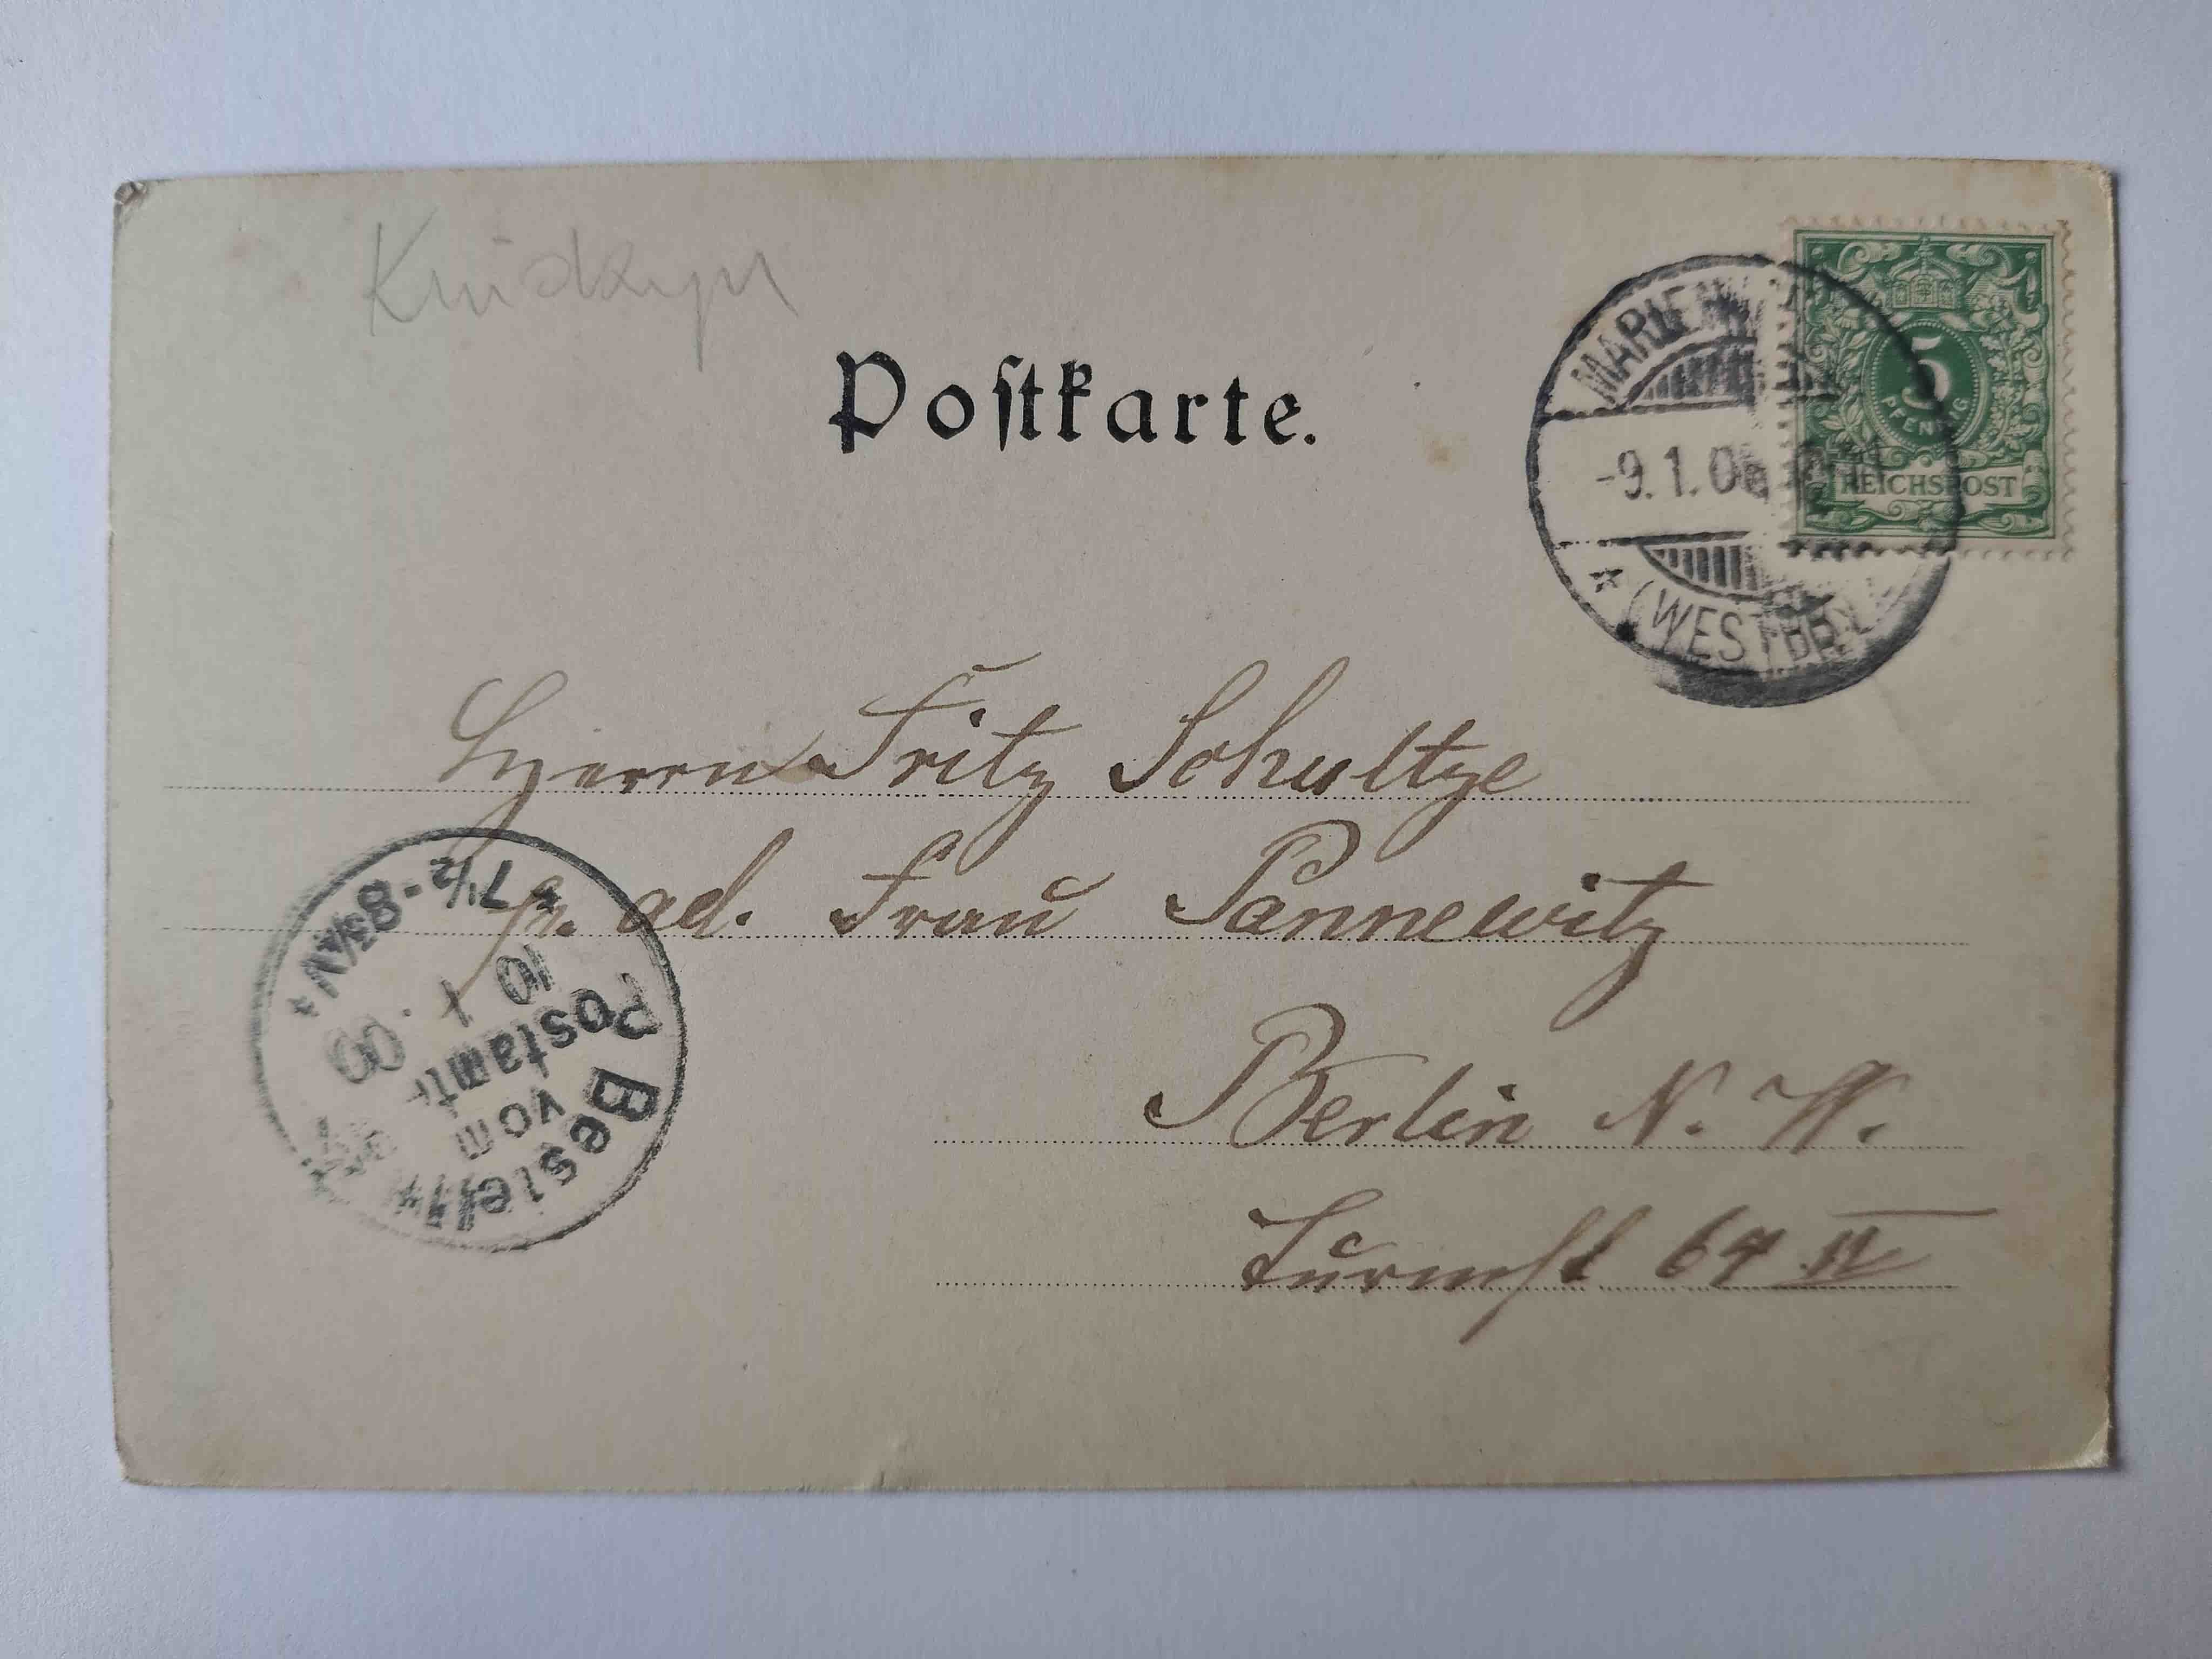 Postkarte.
5
PFENNIG
REICHSPOST
MARIEN
-9.1.00
* (WESTPR.)
Herrn Fritz Schultze
p. ad. Frau Pannewitz
Berlin N. W.
Turmst 64 II
Bestellt
vom
Postamte
10 1. 00
* 7½-8¾N *